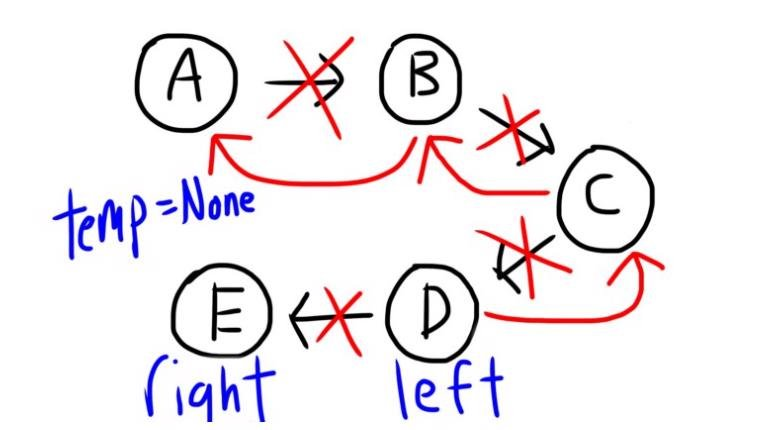 A
B
C
temp=None
E
D
right
left